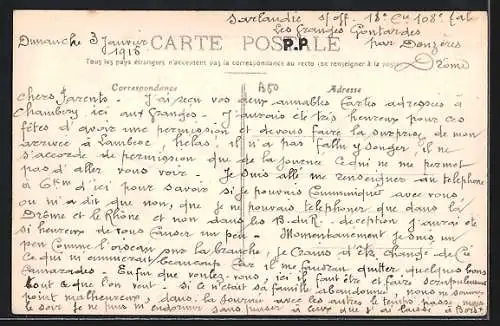 Sarlandie s/off. 18e Cie 108e
Dimanche 3 Janvier
1916
Les Granges Gontardes
par Donzères
Drôme
CARTE POSTALE
P.P.
Tous les pays étrangers n'acceptent pas la correspondance au recto (se renseigner à la
Correspondance
B50
Adresse
Chers Parents - J'ai reçu vos deux aimables Cartes adressées à
Chambéry ici aux Granges - J'aurais été très heureux pour ces
fêtes d'avoir une permission et devous faire la surprise de mon
arrivée à Lambesc, hélas, il n'a pas fallu y songer, il ne
s'accorde de permission que de la journée Ce qui ne me permet
pas d'aller vous voir - Je suis allé me renseigner au téléphone
à 6Km d'ici pour savoir si je pouvais Communiquer avec vous,
on m'a dit que non, que je ne pouvais telephoner que dans la
Drôme et le Rhône et non dans les B.du.R. - deception j'aurai été
si heureux de vous Causer un peu - Momentanement je suis un
peu Comme l'oiseau sur la branche, je Crains d'être changé de Cie
Ce qui m'ennuierait beaucoup Car il me faudrait quitter quelques bons
Camarades - Enfin que voulez-vous, ici il faut être et faire
tout ce que l'on veut - si ce n'était sa famille abandonnée, nous ne serions
point malheureux, dans la journée avec les autres le temps passe mais
le soir je ne puis m'endormir sans penser à Ceux que j'ai laissé à